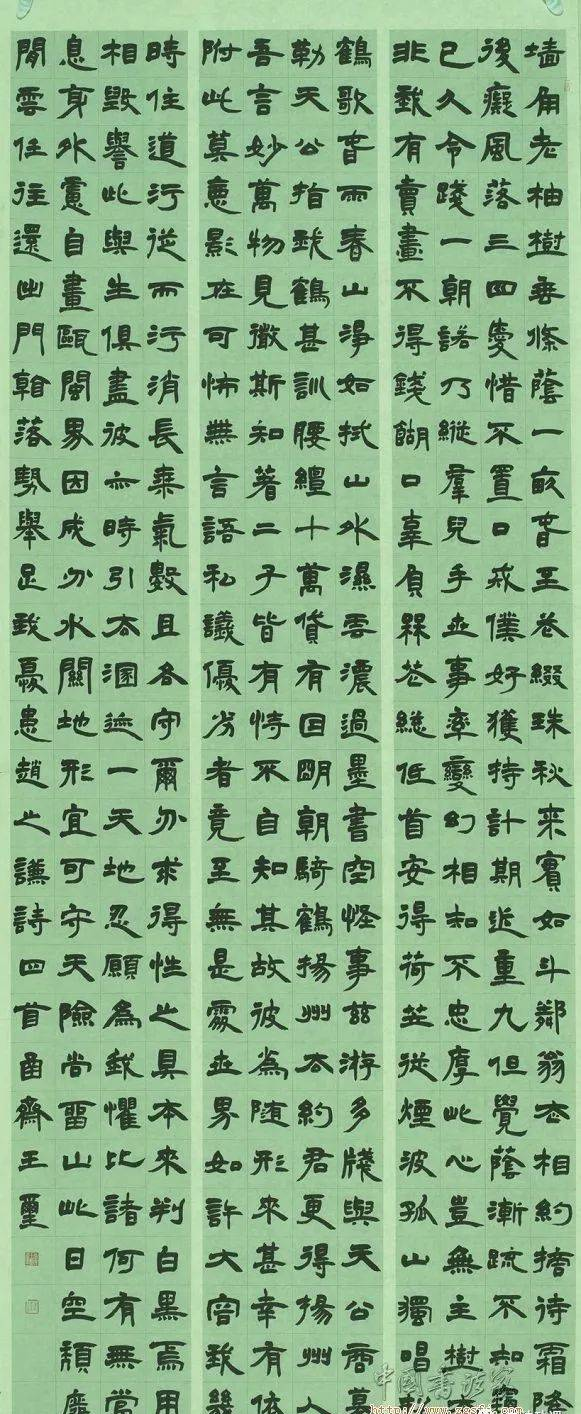 墙角老柚樹垂條蔭一畝春至花綴珠秋來實如斗鄰翁相約待霜降
後癡風落三四愛惜不置口戎僕好獲持計期近重九但覺蔭漸疏不知
已久令踐一朝諾乃縱羣兒手世事率變幻相知不忠厚此心豈無主樹
非我有賣畫不得錢餬口辜負花總低首安得荷芷從煙波孤山獨唱
鶴歌春雨春山淨如拭山外濕雲濃過墨書空怪事茲游多牋與天公
勒天公指我鶴甚訓腰纏十萬貸有因明朝騎鶴揚州去約君更得揚州人
吾言妙萬物見微斯知著二子皆有恃不自知其故彼為隨形來甚幸有依
附此莫惡影在可怖無言語私議優劣者竟至無是處世界如許大容我幾
時住道行從而污消長乘氣數且各守爾分求得性之具本來判白黑焉用
相毀譽此與生俱盡彼亦時引去溷迹一天地忍願為我懼比諸何有無當
息身外慮自畫甌閩界因成分水關地形宜可守天險尚留山此日空頹靡
閒雲任往還出門落勢舉足我憂患趙之謙詩四首函齋王璽
中國書法家